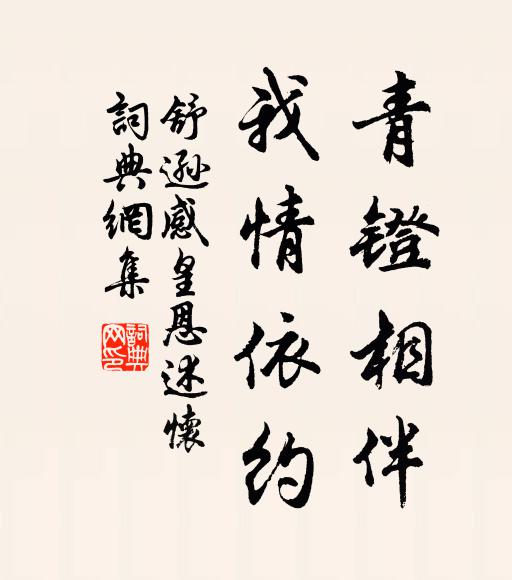 青鐙相伴
我情依約
舒遜感皇恩述懷
詞典網集
詞典网印